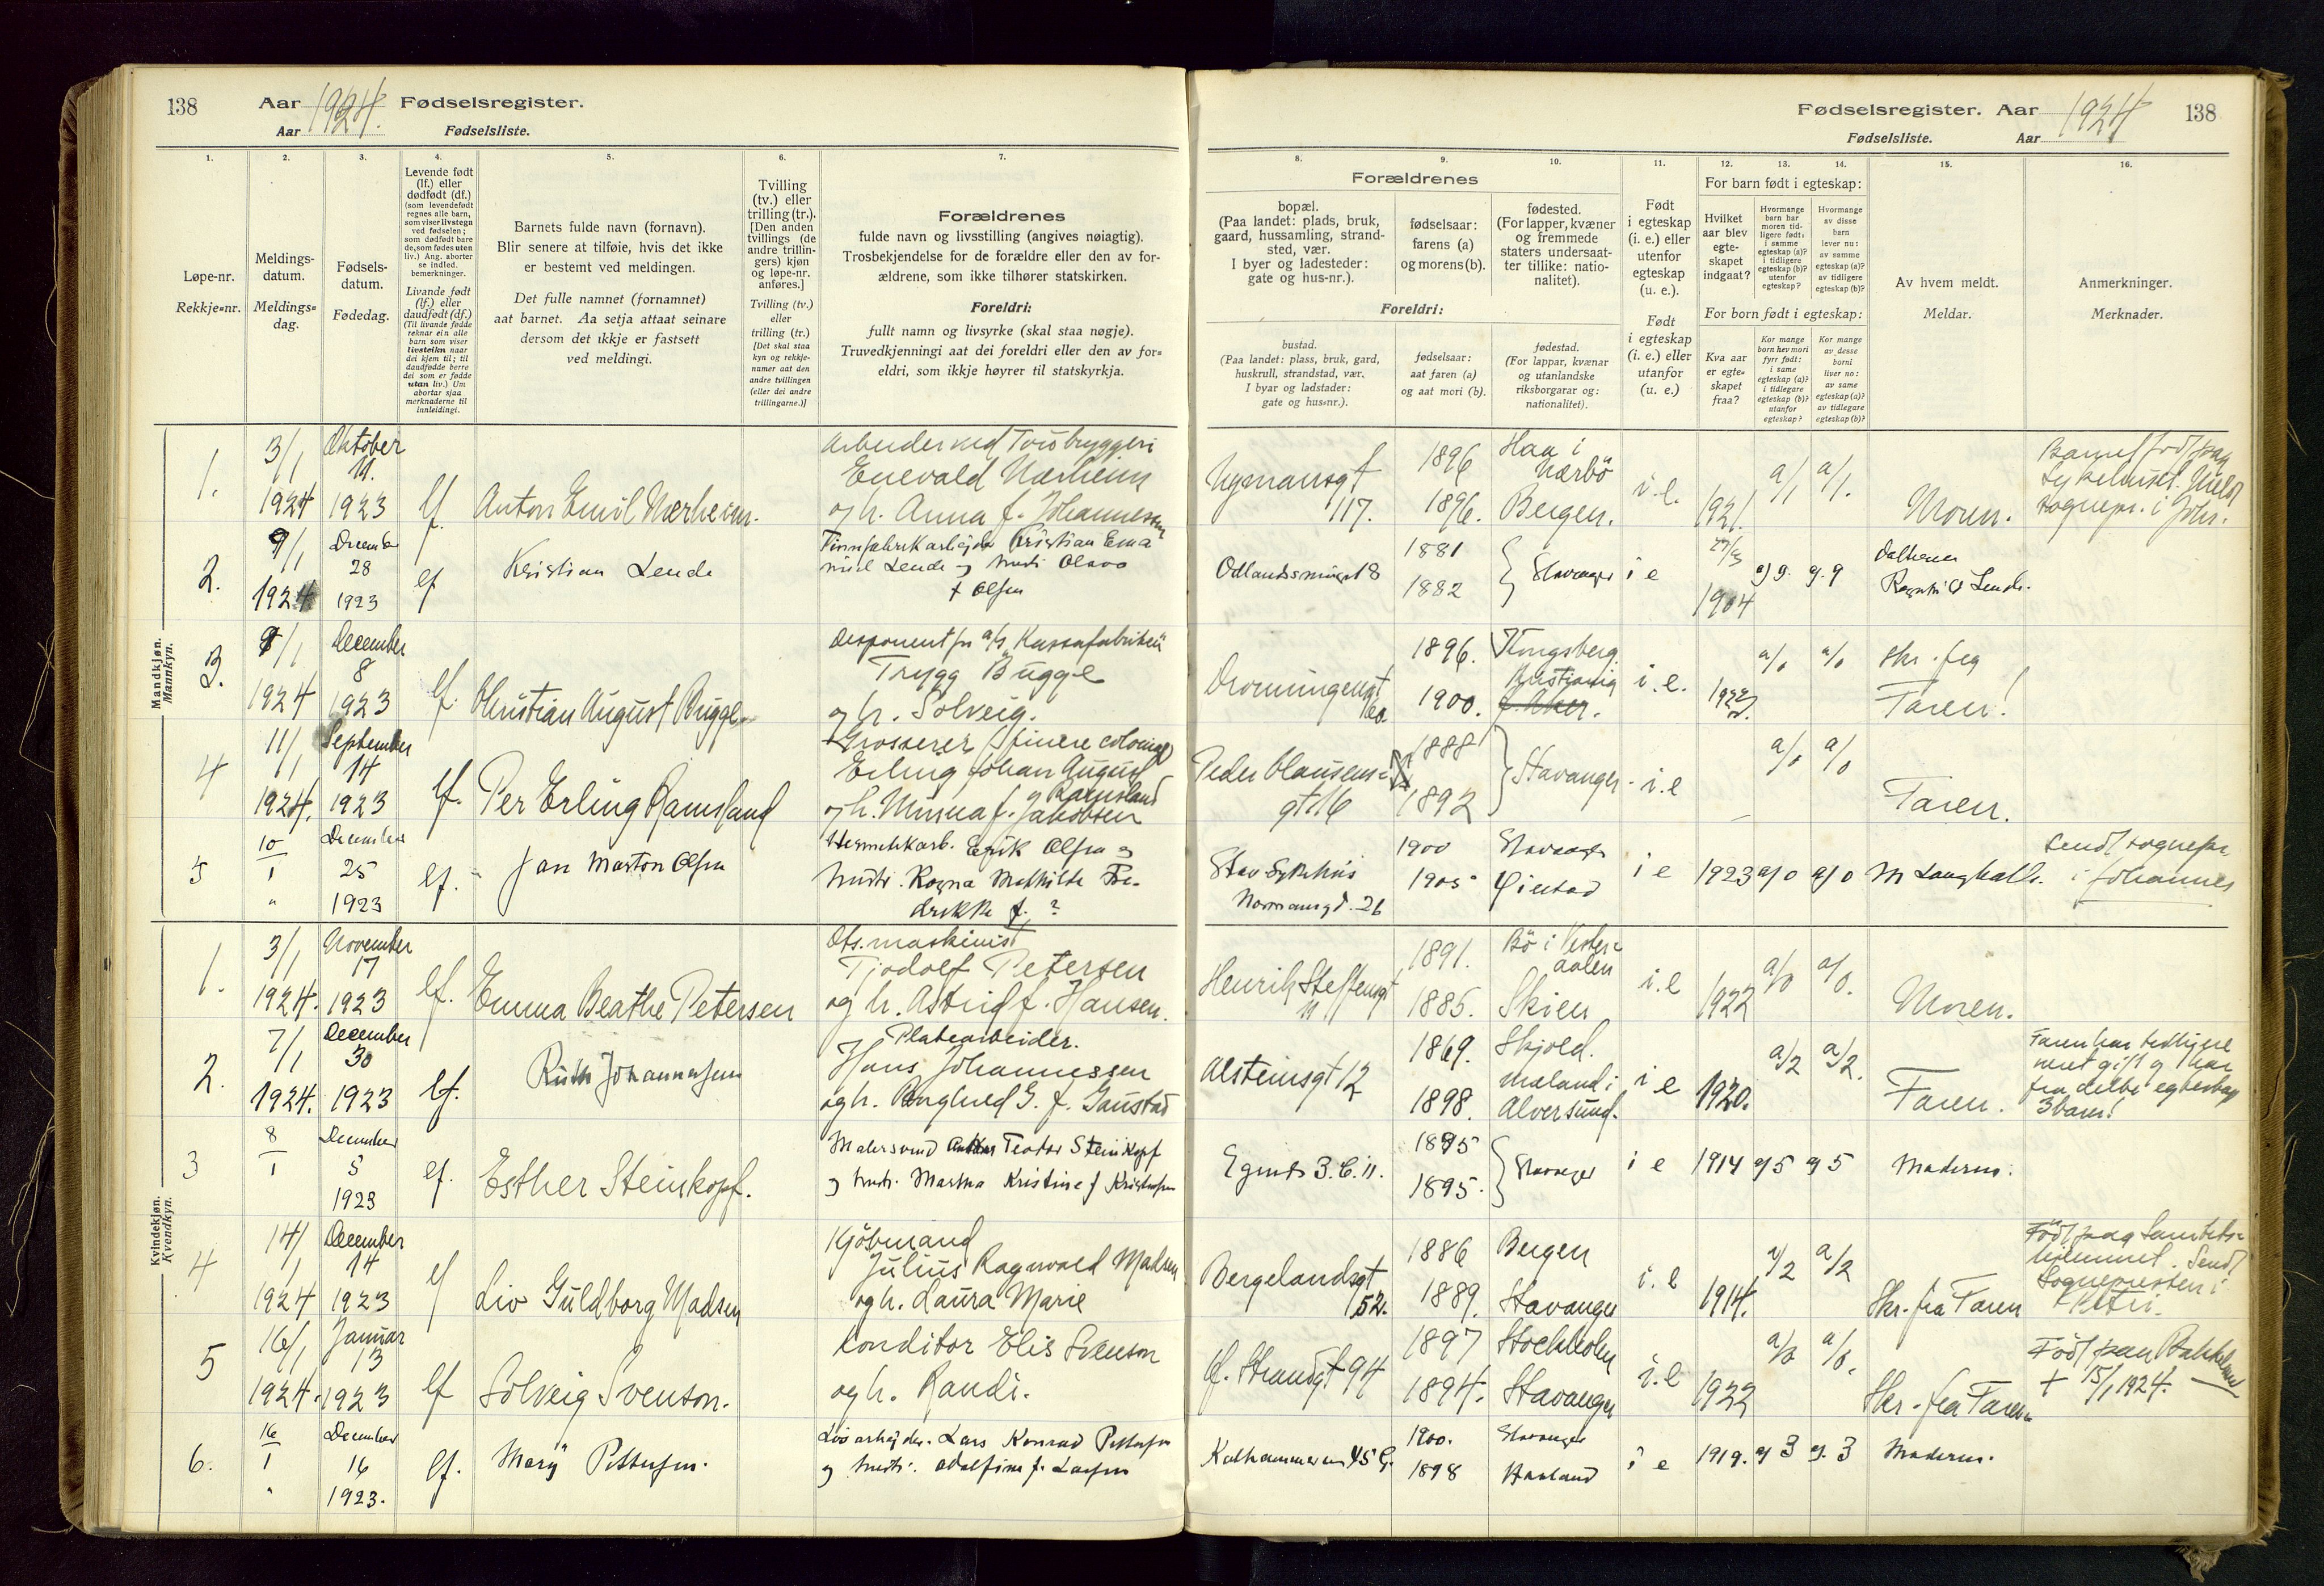 138 Aar 1924. Fødselsregister.
Aar Fødselsliste.
1. 2. 3. 4. 5. 6. 7.
Løpe-nr.
Rekkje-nr.
Meldings-
datum.
Meldings-
dag.
Fødsels-
datum.
Fødedag.
Levende født
(lf.) eller
dødfødt (df.)
(som levendefødt
regnes alle barn,
som viser livstegn
ved fødselen;
som dødfødt bare
de, som fødes uten
liv.) Ang. aborter
se indled.
bemerkninger.
Livande født
(lf.) eller
daudfødt (df.)
(Til livande fødde
reknar ein alle
barn som viser
livsteikn naar
dei kjem til; til
daudfødde berre
dei som er fødde
utan liv.) Um
abortar sjaa
merknaderne til
innleidingi.
Barnets fulde navn (fornavn).
Blir senere at tilføie, hvis det ikke
er bestemt ved meldingen.
Det fulle namnet (fornamnet)
aat barnet. Aa setja attaat seinare
dersom det ikkje er fastsett
ved meldingi.
Tvilling
(tv.) eller
trilling (tr.).
[Den anden
tvillings (de
andre trillin-
gers) kjøn
og løpe-nr.
anføres.]
Tvilling (tv.)
eller
trilling (tr.)
[Det skal staa
kyn og rekkje-
numer aat den
andre tvillingen
(eller dei andre
trillingarne.)]
Forældrenes
fulde navn og livsstilling (angives nøiagtig).
Trosbekjendelse for de forældre eller den av for-
ældrene, som ikke tilhører statskirken.
Foreldri:
fullt namn og livsyrke (skal staa nøgje).
Truvedkjenningi aat dei foreldri eller den av for-
eldri, som ikkje høyrer til statskyrkja.
Mandkjøn.
Mannkyn.
1. 3/1 1924 Oktober 11. 1923 lf. Anton Emil Nærheim.
Arbeider ved Tou bryggeri
Enevald Nærheim
og h. Anna f. Johannessen
2. 9/1 1924 December 28 1923 lf Kristian Lende
Kristian Ema
nuel Lende og hustr. Olava
f Olsen
3. 1924 December 8 1923 lf. Christian August Bugge
Trygg Bugge
og h. Solveig.
4 11/1 1924. September 14 1923 lf. Per Erling Ramsland
Grosserer (finere colonial)
Erling Johan August
Ramsland
og h. Minna f. Jakobsen
5 10/1 " December 25 1923 lf. Jan Morton Olsen
Hermetikarb. Erik Olsen og
hustr. Ragna Mathilde Fre-
drikke f. ?
Kvindekjøn.
Kvendkyn.
1. 3/1 1924. November 17 1923 lf. Emma Beathe Petersen
Ots. maskinist
Tjodolf Petersen
og h. Astrid f. Hansen.
2. 7/1 1924. December 30 1923 lf. Ruth Johannessen
Platearbeider.
Hans Johannessen
og h. G. f. Gaustad
3 8/1 December 5 1923 lf. Esther Steinskopf.
Malersvend Teodor Steinkopf
og hustr. Martha Kristine f Kristensen
4 14/1 1924 December 14 1923 lf Liv Guldborg Madsen
Kjöbmand
Julius Ragnvald Madsen
og h. Laura Marie
5 16/1 1924. Januar 13 1923 lf Solveig Svenson.
Konditor Elis Svenson
og h. Randi.
6. 16/1 " December 16 1923. lf. Mary Pettersen.
Lars Konrad Pettersen
og hustr. Adolfine f. Larsen
Fødselsregister. Aar 1924 138
Fødselsliste. Aar
8. 9. 10. 11. 12. 13. 14. 15. 16.
Forældrenes
bopæl.
(Paa landet: plads, bruk,
gaard, hussamling, strand-
sted, vær.
I byer og ladesteder:
gate og hus-nr.).
fødselsaar:
farens (a)
og morens (b).
fødested.
(For lapper, kvæner
og fremmede
staters undersaat-
ter tillike: natio-
nalitet).
Foreldri:
bustad.
(Paa landet: plass, bruk, gard,
huskrull, strandstad, vær.
I byar og ladstader:
gate og hus-nr.).
fødselsaar:
aat faren (a)
og aat mori (b).
fødestad.
(For lappar, kvænar
og utanlandske
riksborgarar og:
nationalitet).
Født
i egteskap
(i. e.) eller
utenfor
egteskap
(u. e.).
Født
i egteskap
(i. e.) eller
utanfor
(u. e.)
For barn født i egteskap:
Hvilket
aar blev
egte-
skapet
indgaat?
Hvormange
barn har
moren tid-
ligere født:
i samme
egteskap (a)?
i tidligere
egteskap (b)?
utenfor
egteskap?
Hvormange
av disse
barn
lever nu:
av samme
egteskap (a)?
av tidligere
egteskap (b)?
For born født i egteskap:
Kva aar
er egte-
skapet
fraa?
Kor mange
born hev mori
fyrr født:
i same
egteskap (a)?
i tidlegare
egteskap (b)?
utanfor
egteskap?
Kor mange
av desse
borni
liver no:
av same
egteskap (a)?
av tidlegare
egteskap (b)?
Av hvem meldt.
Meldar.
Anmerkninger.
Merknader.
Nymansgt 117. 1896 1896. Haa i Nærbö Bergen. i.e. 1921. a/1 a/1. Moren.
Barnet født paa
Sykehuset. Meldt
sognepr. i Johs.
18 1881 1882 Stavanger i e 1904 a) 9. a. 9 Datteren
Ragnhild Lende.
Dronningensgt 1896. 1900. Kongsberg. Kristiania i.e. 1922. a/0 a/0 skr. fra
Faren!
Peder Clausens-
gt. 16 1888 1892 Stavanger. i.e a/0 a/0 Faren.
Stav Sykehus
26 1900 1905 Stavanger i e 1923 a/0 a/0
Sendt sognepr
i Johannes
Henrik Steffensgt
11 1891. 1885. Bö i Vester-
aalen
Skien i.e 1922 a/0 a/0. Moren.
Alsteinsgt 12 1869. 1898. Skjold.
Mæland i
Alversund. i e 1920. a/2 a/2. Faren.
Faren har tidligere
været gift og har
fra dette egteskap
3 barn!
Egenes 3. C. 11. 1895 1895. Stavanger i e 1914 a) 5 a) 5 Moderen.
Bergelandsgt
52. 1886 1889. Bergen Stavanger i.e 1914. a/2 a/2 Skr. fra Faren
Født paa Sanitets-
hjemmet. Sendt
Sognepresten i
Petri.
Strandgt 94 1897 1894. Stockholm Stavanger i.e 1922 a/0 a/0. Skr. fra Faren
Født paa
+ 15/1 1924.
Kalhammeren 45 G. 1900. 1898 Stavanger i e 1919. a) 3 a. 3 Moderen.